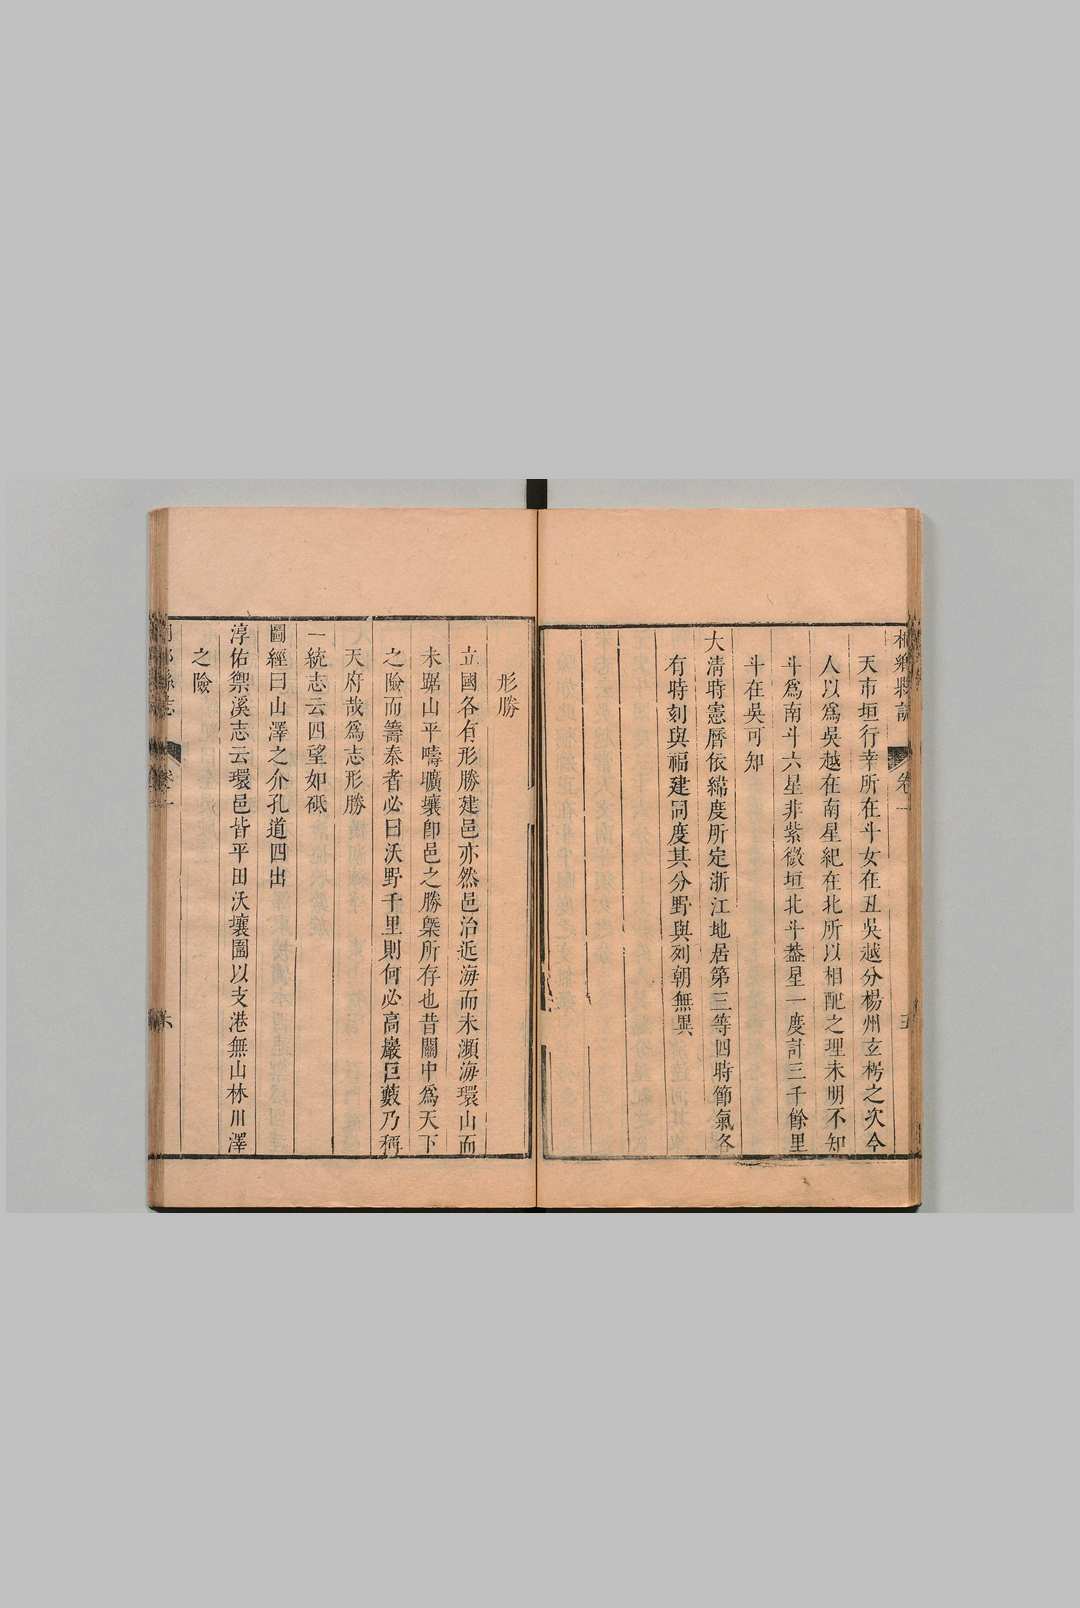 卷一
天市垣行幸所在斗女在丑吳越分楊州玄枵之次今
人以爲吳越在南星紀在北所以相配之理未明不知
斗爲南斗六星非紫微垣北斗葢星一度計三千餘里
斗在吳可知
大淸時憲曆依緯度所定浙江地居第三等四時節氣各
有時刻與福建同度其分野與列朝無異
形勝
立國各有形勝建邑亦然邑治近海而未瀕海環山而
未踞山平疇壙壤卽邑之勝槩所存也昔關中爲天下
之險而籌秦者必曰沃野千里則何必高巖巨藪乃稱
天府哉爲志形勝
一統志云四望如砥
圖經曰山澤之介孔道四出
淳佑禦溪志云環邑皆平田沃壤圍以支港無山林川澤
之險
縣志
卷一